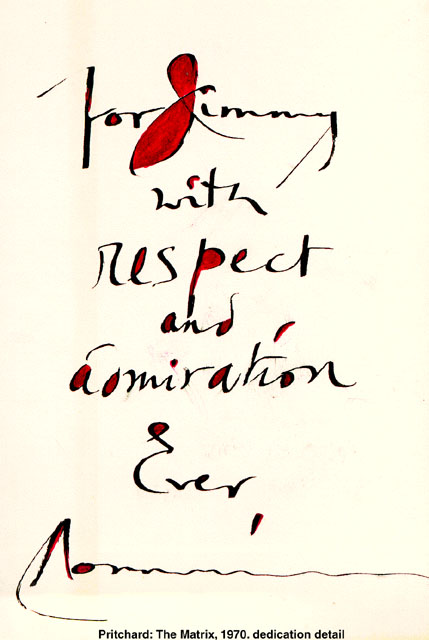 for Jimmy
with
respect
and
admiration
Ever,
Pritchard: The Matrix, 1970. dedication detail